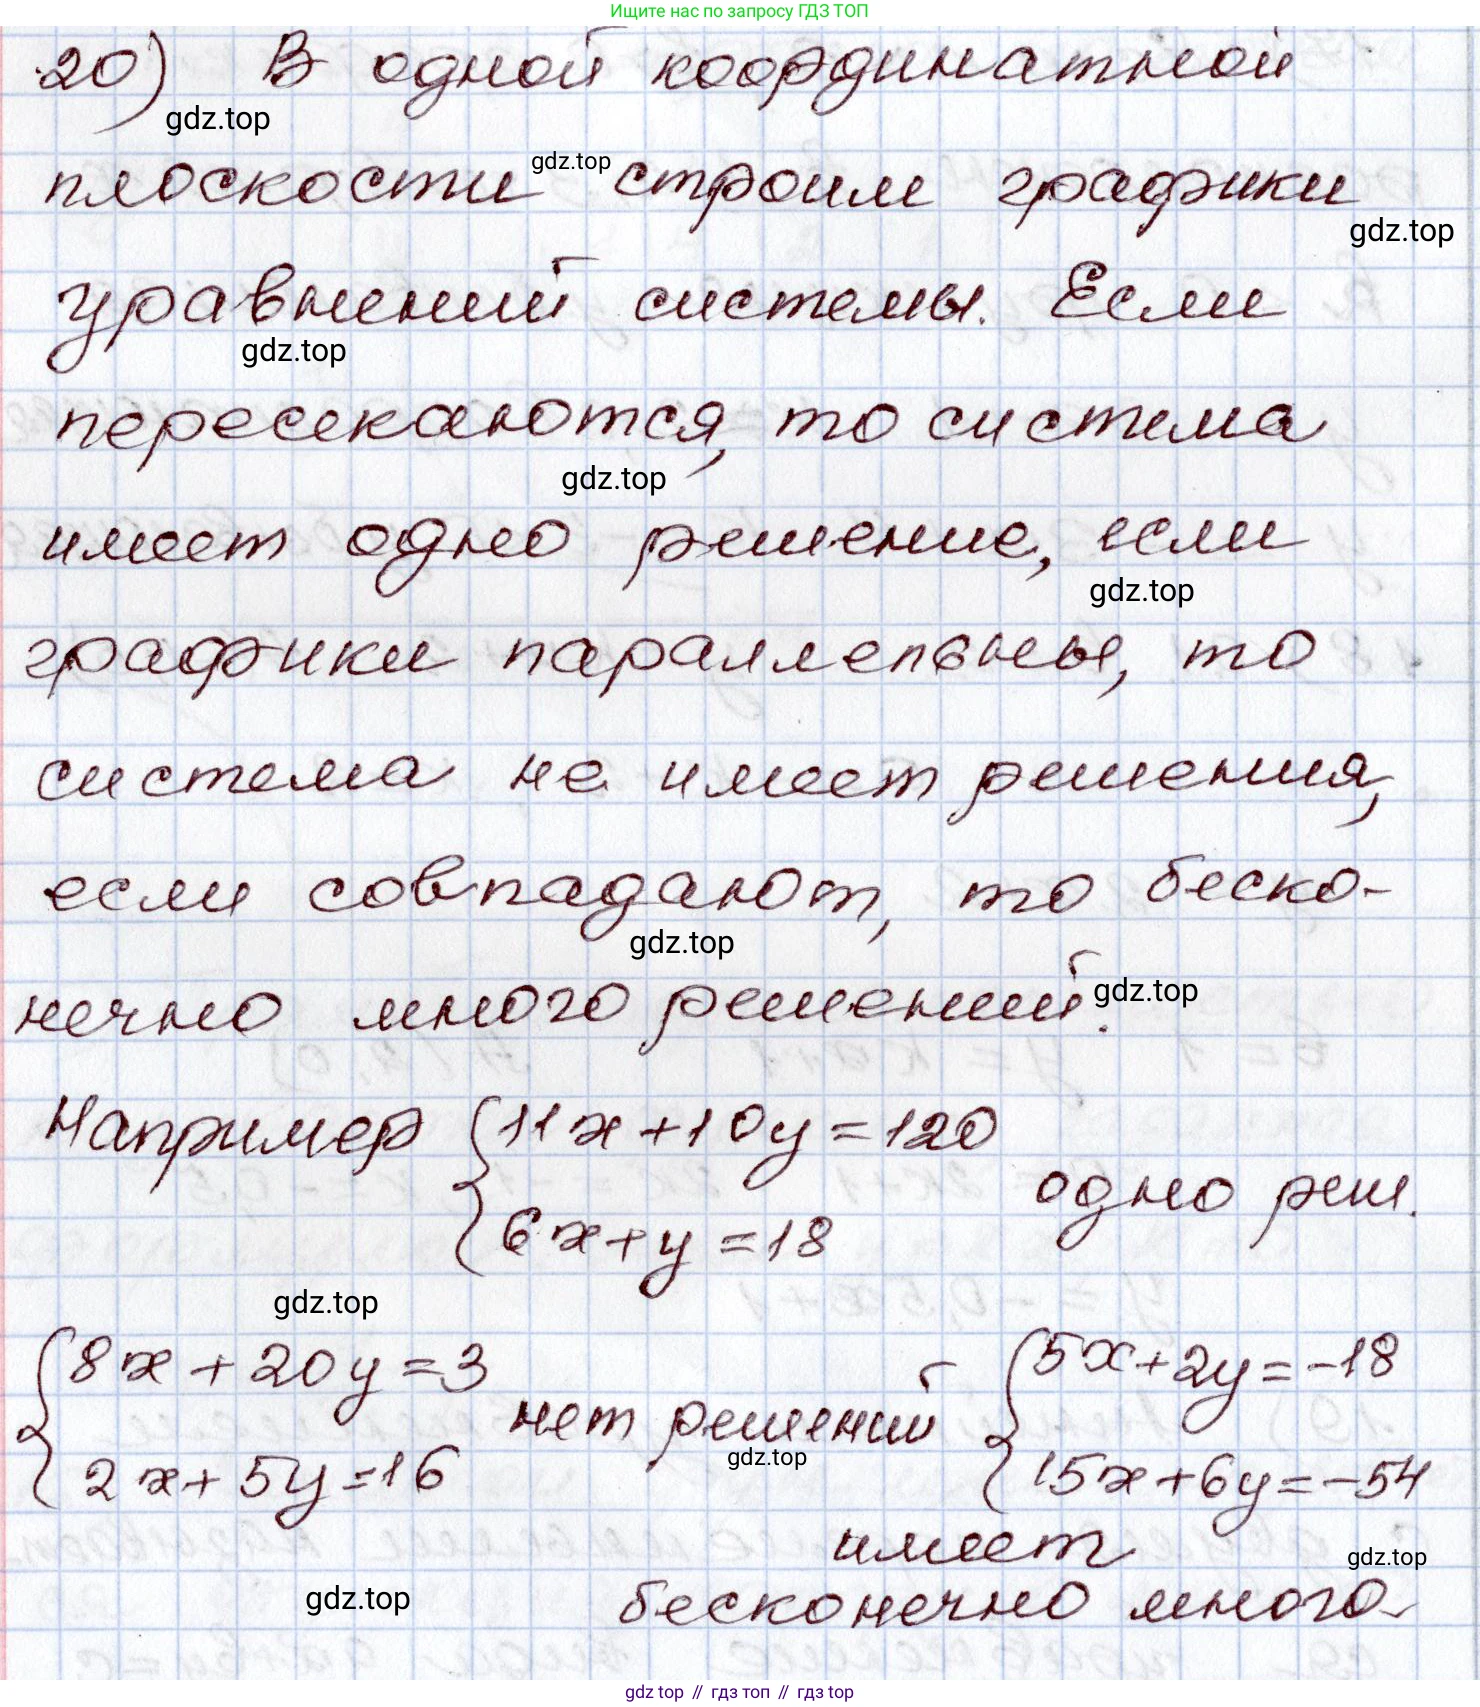 Ищите нас по запросу ГДЗ ТОП
20) В одной координатной
gdz.top
плоскости gdz.top строим графики
gdz.top
уравнений системы. Если
gdz.top
пересекаются, то система
gdz.top
имеет одно решение, если
gdz.top
графики параллельны, то
система не имеет решения,
если совпадают, то беско-
gdz.top
нечно много решений. gdz.top
Например { 11x + 10y = 120
одно реш.
6x + y = 18
gdz.top
{ 8x + 20y = 3 нет решений { 5x + 2y = -18
gdz.top
2x + 5y = 16 15x + 6y = -54
имеет
gdz.top
gdz.top бесконечно много
gdz.top // гдз топ // гдз top